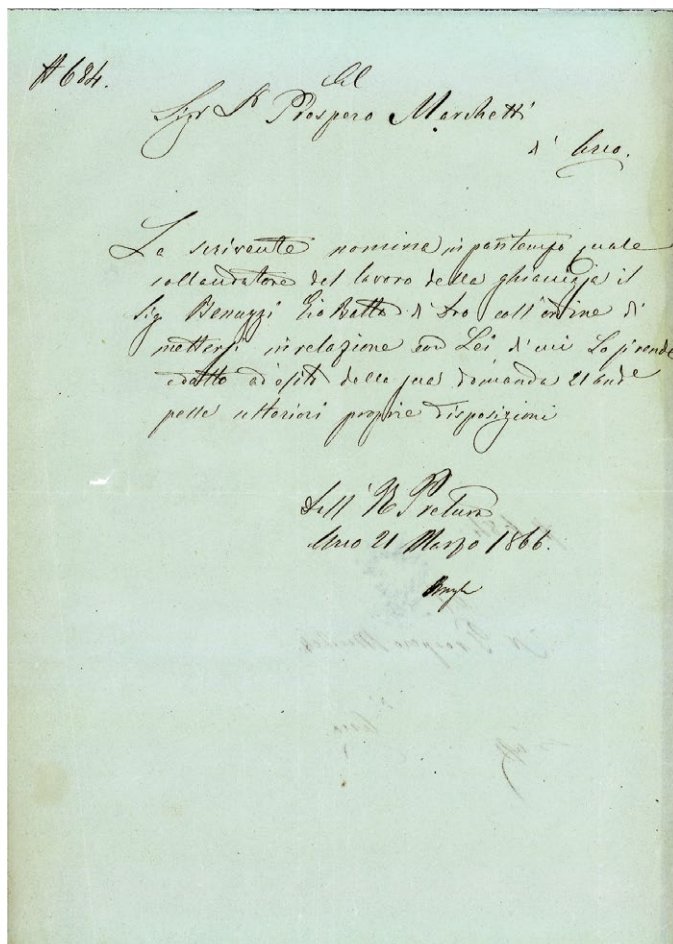 N 684.
Al
Sigr Dr Prospero Marchetti
d' Arco.
La scrivente nomina in pari tempo quale
collaudatore del lavoro della ghiacciaja il
Sig Benuzzi Gio Batta di Dro coll'ordine di
mettersi in relazione con Lei di cui La si rende
edotto ad esito della sua domanda 21 and
pelle ulteriori proprie disposizioni
Dall' R Pretura
Arco 21 Marzo 1866.